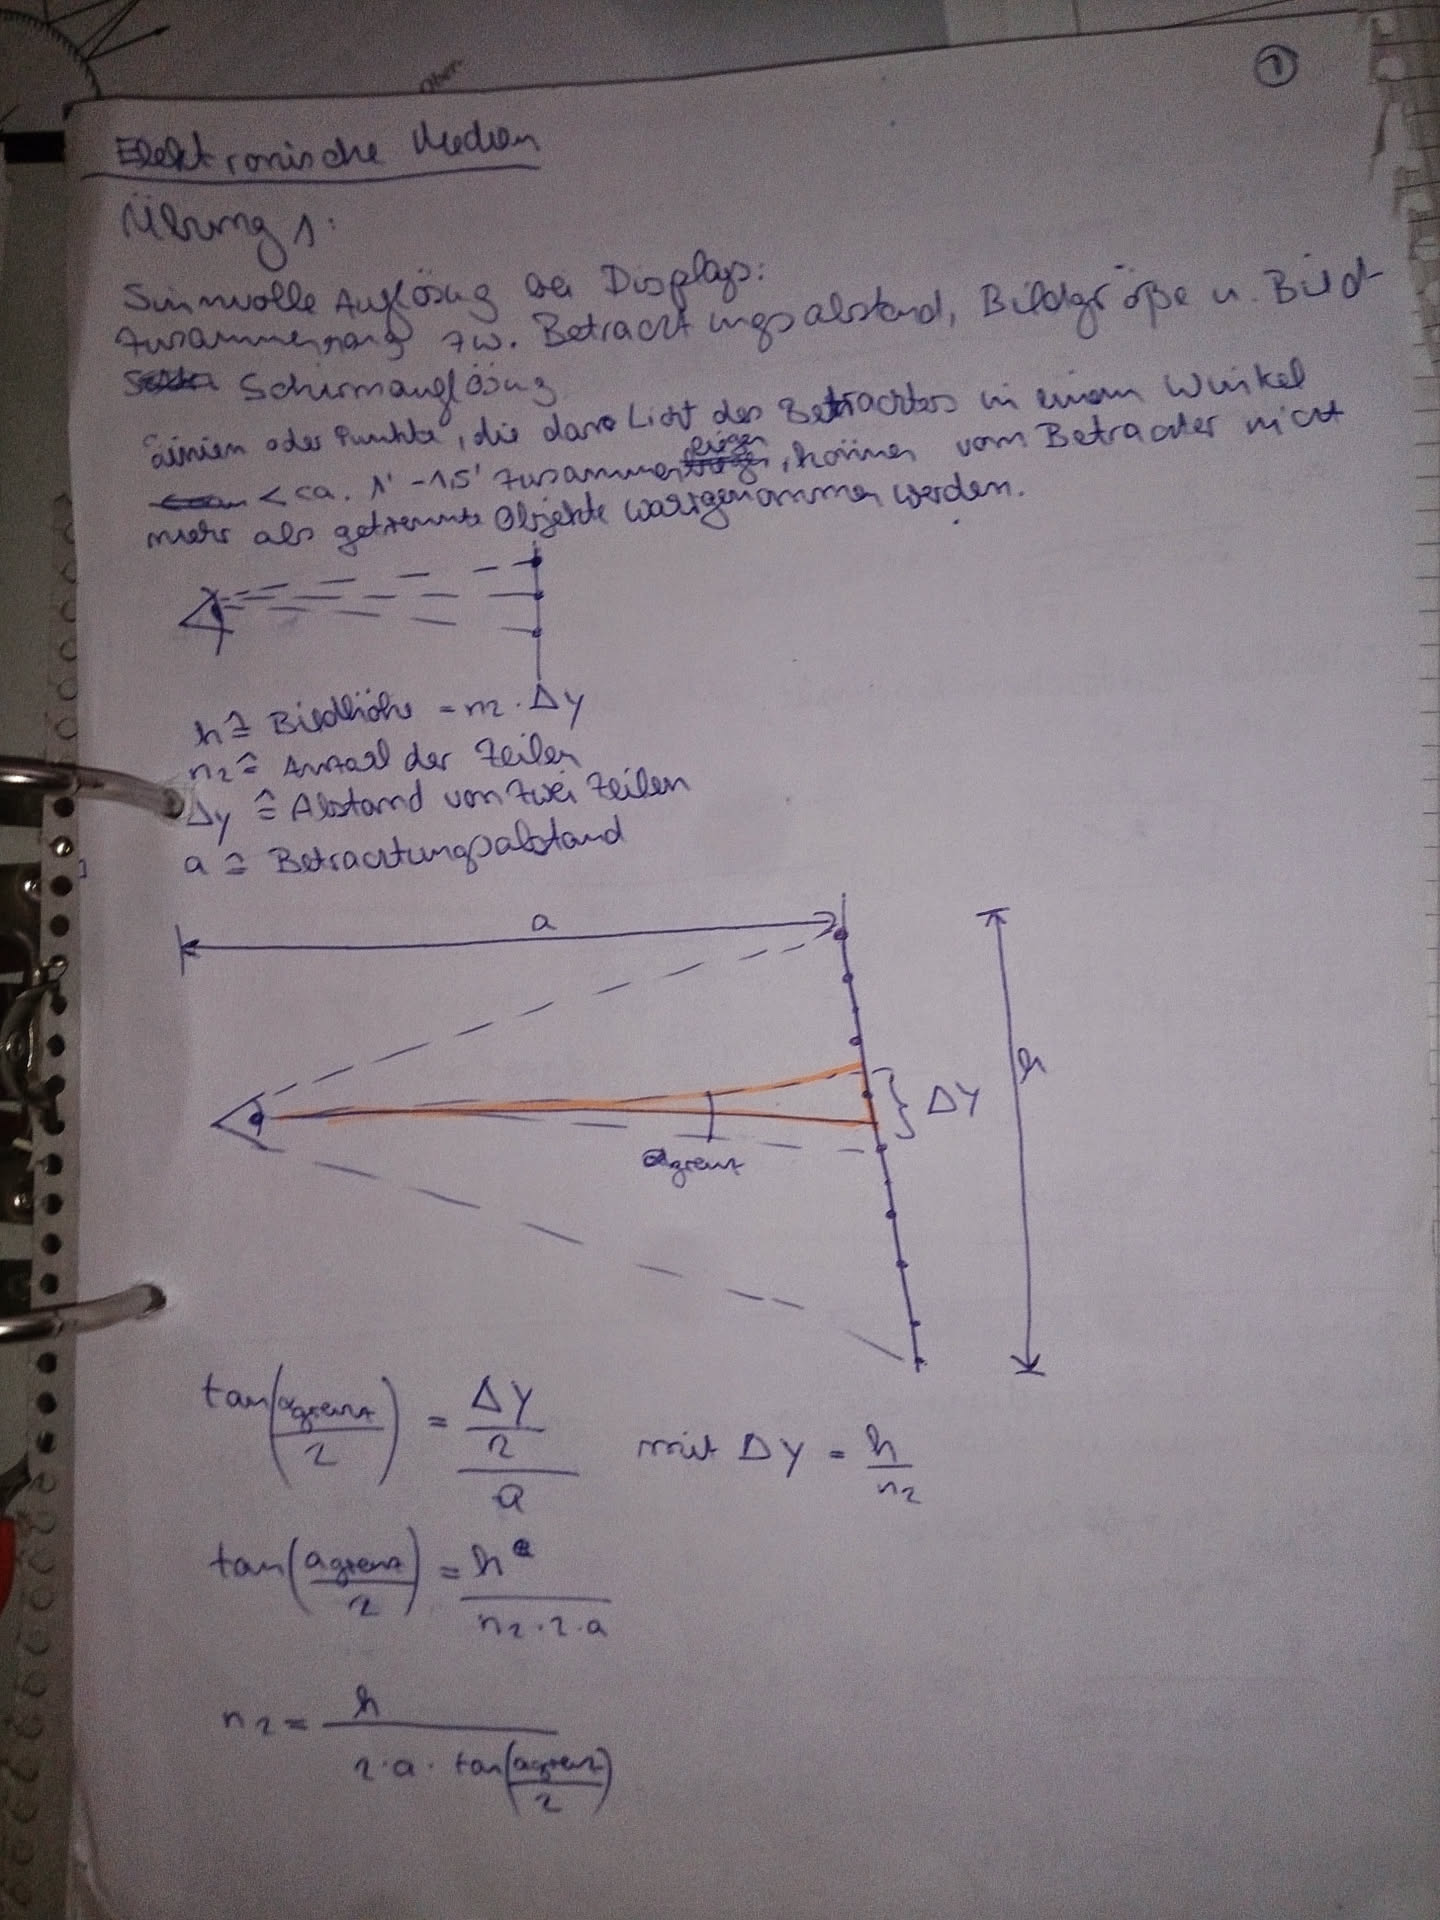 Ober
1
Elektronische Medien
Übung 1:
Sinnvolle Auflösung bei Displays:
Zusammenhang zw. Betrachtungsabstand, Bildgröße u. Bild-
Schirmauflösung
Linien oder Punkte, die dass Licht des Betrachters in einem Winkel
< ca. 1' - 1,5' zusammen liegen, können vom Betrachter nicht
mehr als getrennte Objekte wahrgenommen werden.
h ≙ Bildhöhe = nz · Δy
nz ≙ Anzahl der Zeilen
Δy ≙ Abstand von zwei Zeilen
a ≙ Betrachtungsabstand
a
h
ΔY
αgrenz
tan(αgrenz/2) = (ΔY/2)/a mit ΔY = h/nz
tan(αgrenz/2) = h/(nz·2·a)
nz = h/(2·a·tan(αgrenz/2))